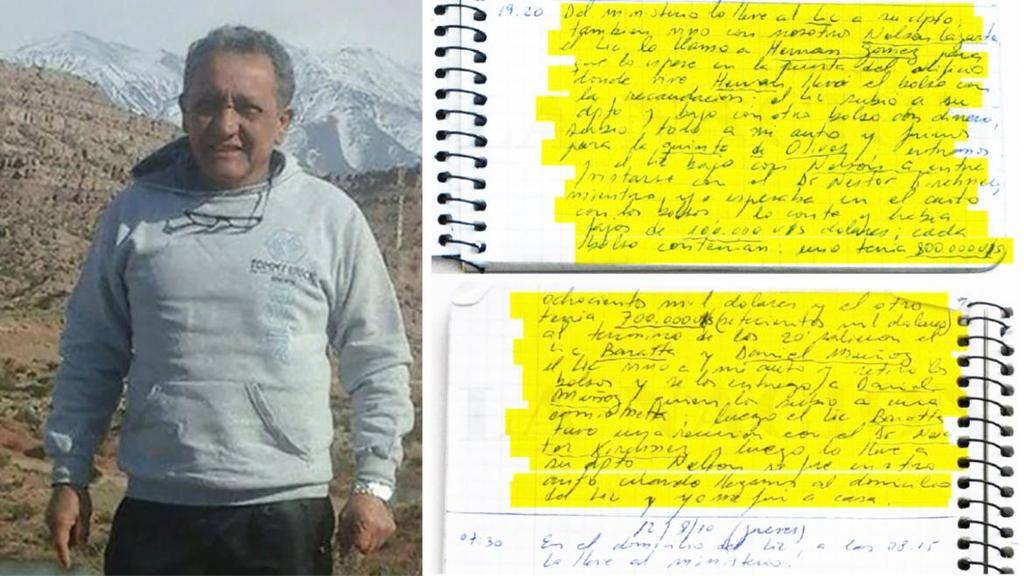 TOMMY
19.20 Del ministerio lo lleve al Lic a su dpto,
tambien vino con nosotros Nelson Lazarte
el Lic lo llamo a Hernan Gomez para
que lo espere en la puerta del edificio
donde vive Hernan llevó el bolso con
la recaudacion; el Lic subio a su
dpto y bajo con otro bolso con dinero,
subio todo a mi auto y fuimos
para la quinta de Olivos, entramos
y el Lic bajo con Nelson a entre
vistarse con el Dr Nestor Kirchner,
mientras yo esperaba en el auto
con los bolsos, los conte y habia
fajos de 100.000 U$s dolares, cada
bolso contenian: uno tenia 800.000 U$s
ochocientos mil dolares y el otro
tenia 700.000 U$s (setecientos mil dolares)
al termino de los 20' salieron el
Lic Baratta y Daniel Muñoz
el Lic vino a mi auto y retiro los
bolsos y se los entrego a Daniel
Muñoz, quien lo subio a una
camioneta, luego el Lic Baratta
tuvo una reunion con el Dr Nes
tor Kirchner y luego lo lleve a
su dpto, Nelson se fue en otro
auto cuando llegamos al domicilio
del Lic y yo me fui a casa.
12/8/10 (jueves)
07:30 En el domicilio del Lic, a las 08.15
lo lleve al ministerio.